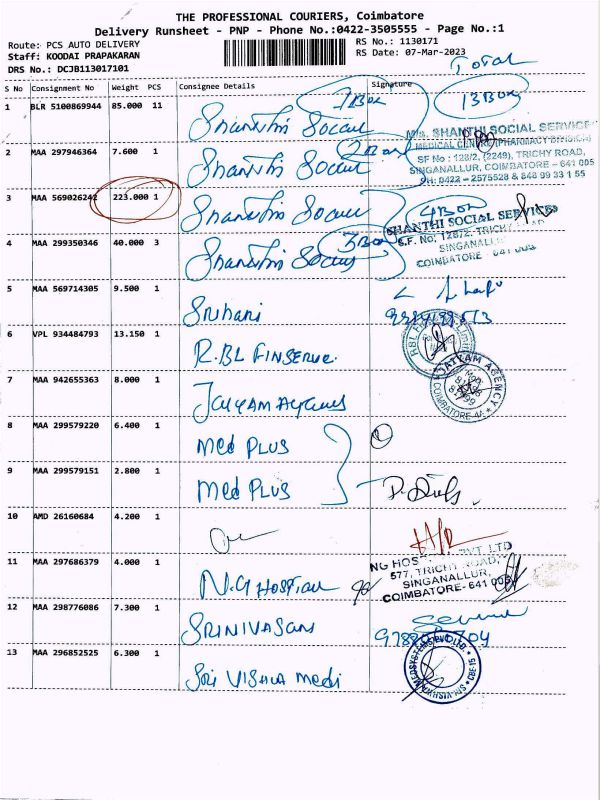 THE PROFESSIONAL COURIERS, Coimbatore
Delivery Runsheet - PNP - Phone No.:0422-3505555 - Page No.:1
Route: PCS AUTO DELIVERY
RS No.: 1130171
Staff: KOODAI PRAPAKARAN
RS Date: 07-Mar-2023
DRS No.: DCJB113017101
Total
S No Consignment No Weight PCS Consignee Details Signature
1 BLR 5100869944 85.000 11 Shanthi Social 7Box 13Box
M/s. SHANTHI SOCIAL SERVICES
MEDICAL CENTRE (PHARMACY DIVISION)
2 MAA 297946364 7.600 1 Shanthi Social 2Box
SF No : 128/2, (2249), TRICHY ROAD,
SINGANALLUR, COIMBATORE - 641 005
PH: 0422 - 2575528 & 848 99 33 1 55
3 MAA 569026242 223.000 1 Shanthi Social 4Box
SHANTHI SOCIAL SERVICES
S.F. No. 128/2, TRICHY ROAD
SINGANALLUR
COIMBATORE - 641 005
4 MAA 299350346 40.000 3 Shanthi Social 3Box
5 MAA 569714305 9.500 1 Srihari
6 VPL 934484793 13.150 1 R.BL FINSERVE
7 MAA 942655363 8.000 1 Jaiyam Agencies
JAIYAM AGENCY
COIMBATORE
8 MAA 299579220 6.400 1 Med PLUS
9 MAA 299579151 2.800 1 Med PLUS
10 AMD 26160684 4.200 1
11 MAA 297686379 4.000 1 N.G HOSPITAL
NG HOSPITAL PVT. LTD
577, TRICHY ROAD,
SINGANALLUR,
COIMBATORE - 641 005
12 MAA 298776086 7.300 1 SRINIVASAN
13 MAA 296852525 6.300 1 Sri VISHNU Medi